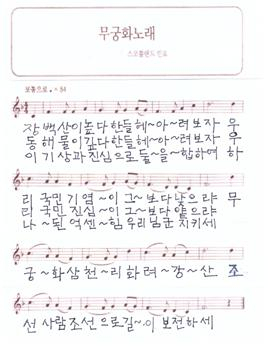 무궁화노래
스코틀랜드 민요
보통으로 ♩ = 84
장백산이높다한들헤~아~려보자 우
동해물이깊다한들헤~아~려보자 우
이기상과진심으로들~을~합하여 하
리국민기염~이그~보다낮으랴 무
리국민진심~이그~보다얕으랴
나~된억센~힘우리님군지키세
궁~화삼천~리화려~강~산 조
선사람조선으로길~이보전하세